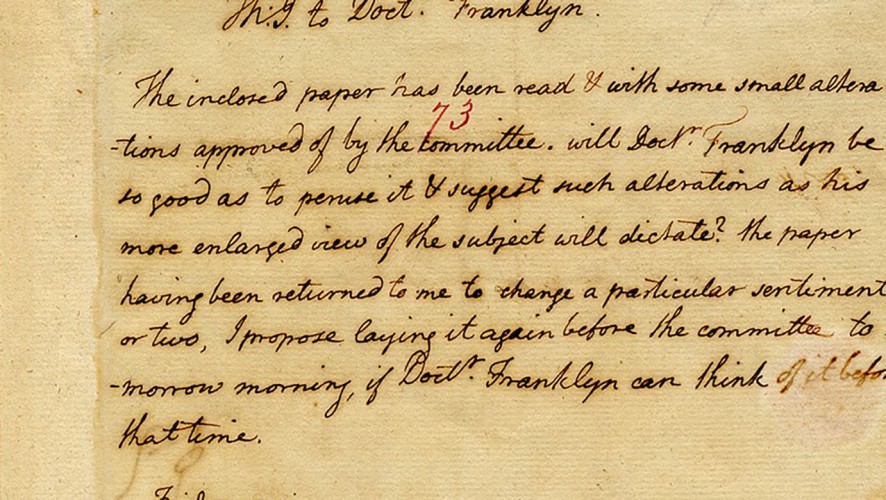 Th: J. to Doct. Franklyn.
The inclosed paper has been read & with some small altera
73
-tions approved of by the committee. will Doctr. Franklyn be
so good as to peruse it & suggest such alterations as his
more enlarged view of the subject will dictate? the paper
having been returned to me to change a particular sentiment
or two, I propose laying it again before the committee to
-morrow morning, if Doctr. Franklyn can think of it befor
that time.